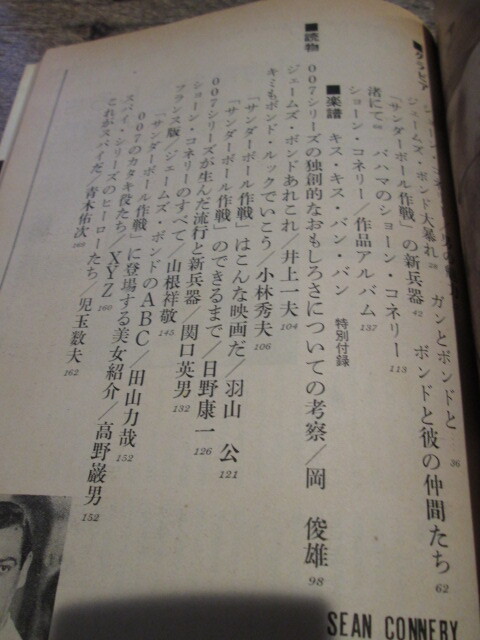 ■グラビア
ガンとボンドと 36
ジェームズ・ボンド大暴れ 39 ボンドと彼の仲間たち 62
「サンダーボール作戦」の新兵器 42
渚にて＝バハマのショーン・コネリー 113
ショーン・コネリー／作品アルバム 137
■楽譜 キス・キス・バン・バン 特別付録
■読物
007シリーズの独創的なおもしろさについての考察／岡 俊雄 98
ジェームズ・ボンドあれこれ／井上一夫 104
キミもボンド・ルックでいこう／小林秀夫 106
「サンダーボール作戦」はこんな映画だ／羽山 公 121
「サンダーボール作戦」のできるまで／日野康一 126
007シリーズが生んだ流行と新兵器／関口英男 132
ショーン・コネリーのすべて／山根祥敬 145
フランス版／ジェームズ・ボンドのABC／田山力哉 152
「サンダーボール作戦」に登場する美女紹介／高野巌男 152
007のカタキ役たち／XYZ 160
スパイ・シリーズのヒーローたち／児玉数夫 162
これがスパイだ／青木佑次 165
SEAN CONNERY